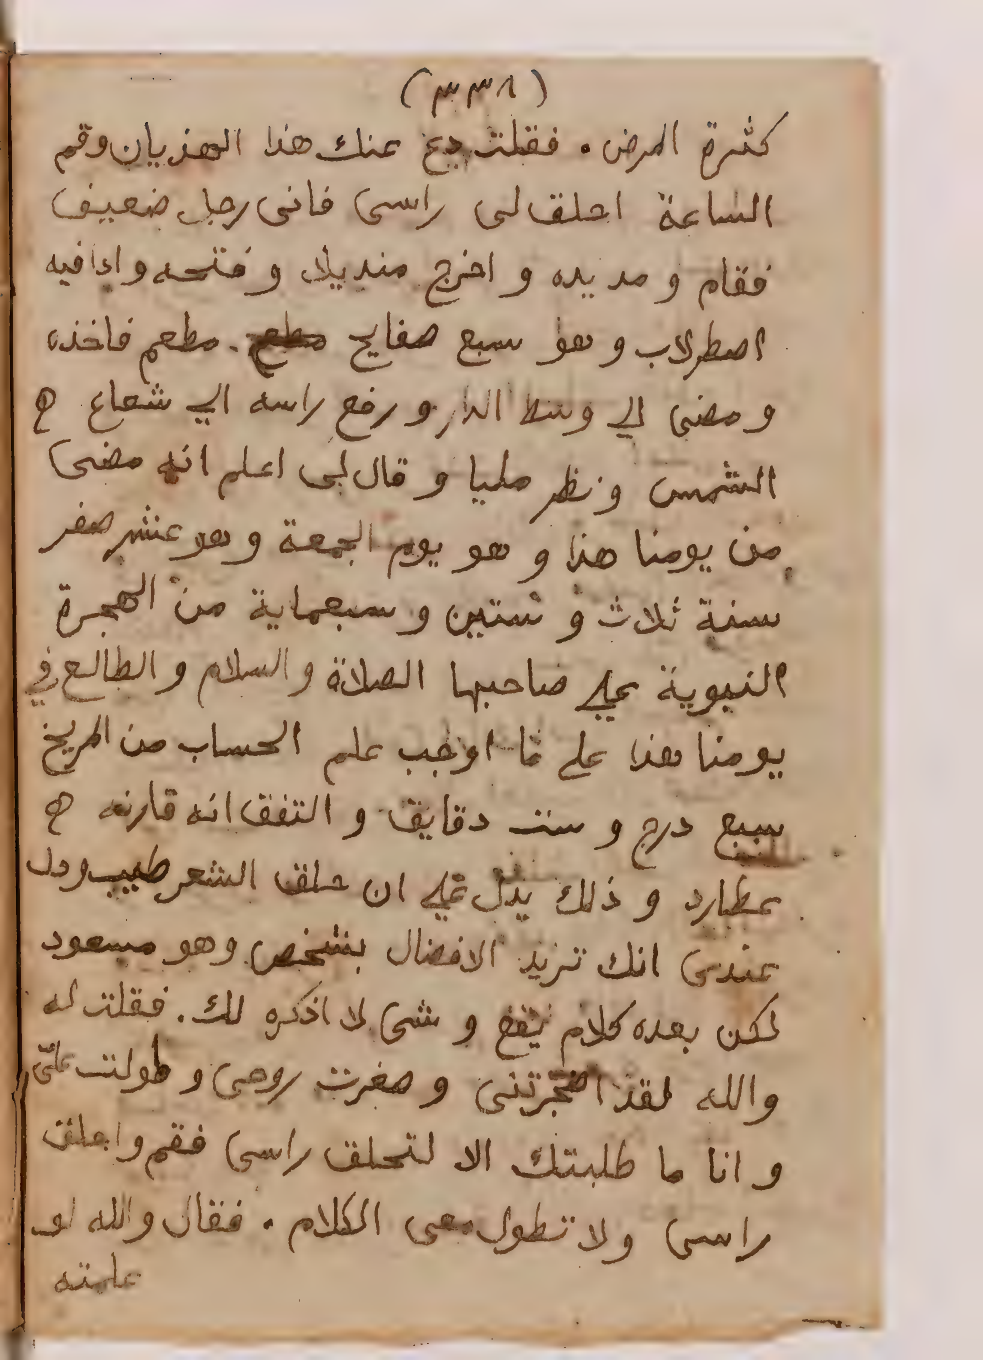 (٣٣٨)
كثرة المرض . فقلت دع عنك هذا الهذيان وقم
الساعة احلق لي راسى فانى رجل ضعيف
فقام و مد يده و اخرج منديلا و فتحه واذا فيه
اصطرلاب و هو سبع صفايح . مطعم فاخذه
و مضى الي وسط الدار و رفع راسه الي شعاع ه
الشمس و نظر مليا و قال لى اعلم انه مضى
من يومنا هذا و هو يوم الجمعة و هو عشر صفر
سنة ثلاث و ستين و سبعماية من الهجرة
النبوية على صاحبها الصلاة والسلام و الطالع في
يومنا هذا على ما اوجب علم الحساب من المريخ
سبع درج و ست دقايق و التفق انه قارنه ه
عطارد و ذلك يدل على ان حلق الشعر طيب ودل
عندى انك تريد الافضال بشخص وهو مسعود
لكن بعده كلام يقع و شى لا اذكره لك . فقلت له
والله لقد اضجرتنى و صغرت روحى و طولت علىّ
و انا ما طلبتك الا لتحلق راسى فقم واحلق
راسى ولا تطول معى الكلام . فقال والله لو
علمته